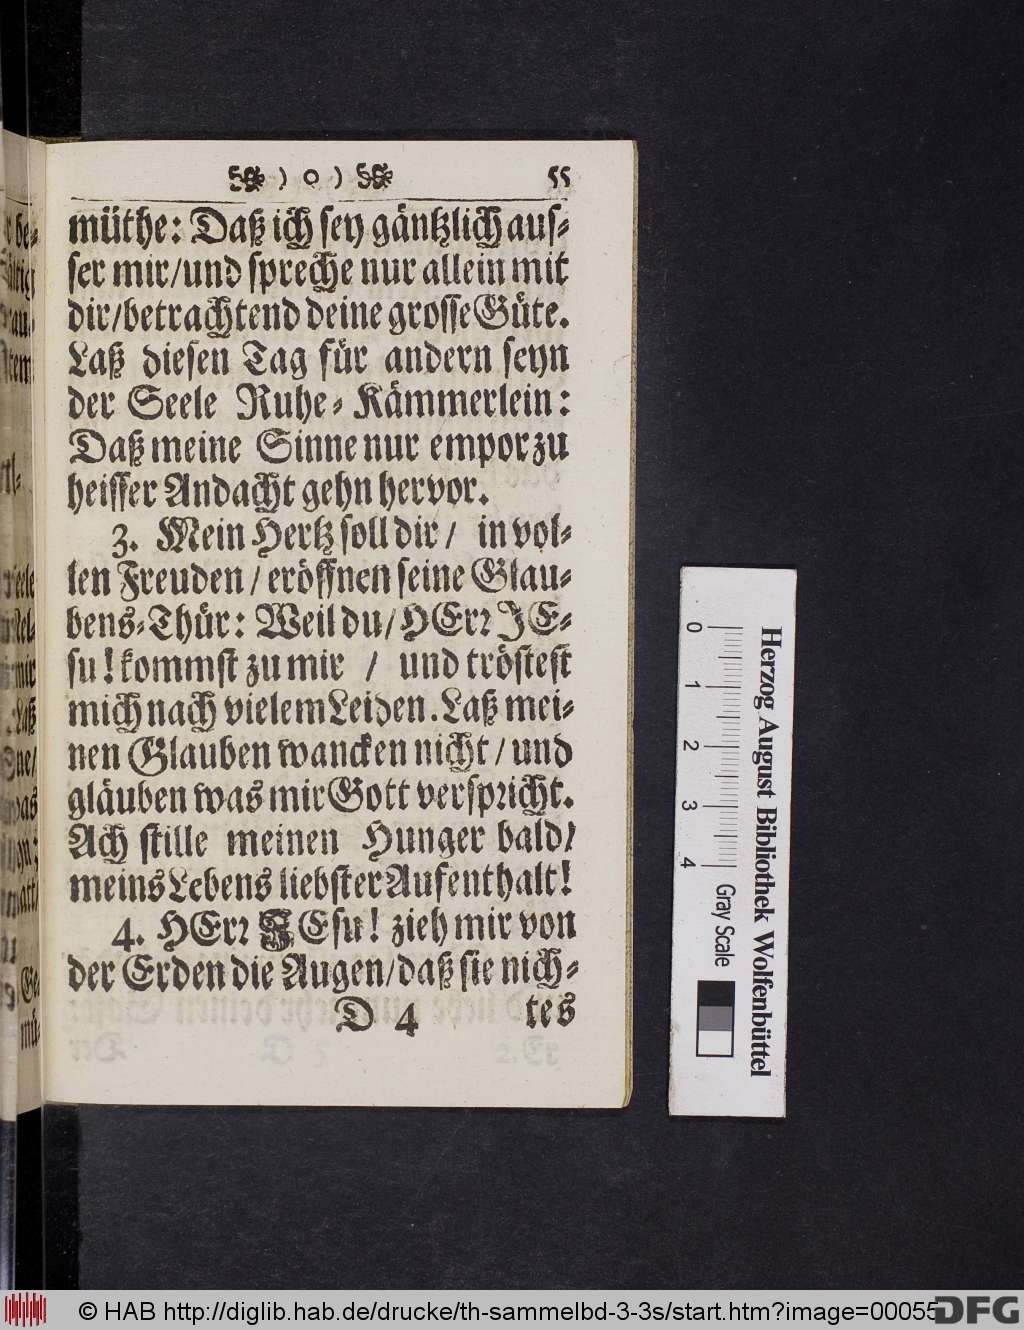 ) o ( 55
müthe: Daß ich sey gäntzlich aus-
ser mir/und spreche nur allein mit
dir/betrachtend deine grosse Güte.
Laß diesen Tag für andern seyn
der Seele Ruhe-Kämmerlein:
Daß meine Sinne nur empor zu
heisser Andacht gehn hervor.
3. Mein Hertz soll dir/ in vol-
len Freuden/eröffnen seine Glau-
bens-Thür: Weil du/HErr JE-
su! kommst zu mir / und tröstest
mich nach vielem Leiden. Laß mei-
nen Glauben wancken nicht/und
gläuben was mir Gott verspricht.
Ach stille meinen Hunger bald/
meins Lebens liebster Aufenthalt!
4. HErr JEsu! zieh mir von
der Erden die Augen/daß sie nich-
D 4 tes
Herzog August Bibliothek Wolfenbüttel
0 1 2 3 4 Gray Scale
© HAB http://diglib.hab.de/drucke/th-sammelbd-3-3s/start.htm?image=00055
DFG